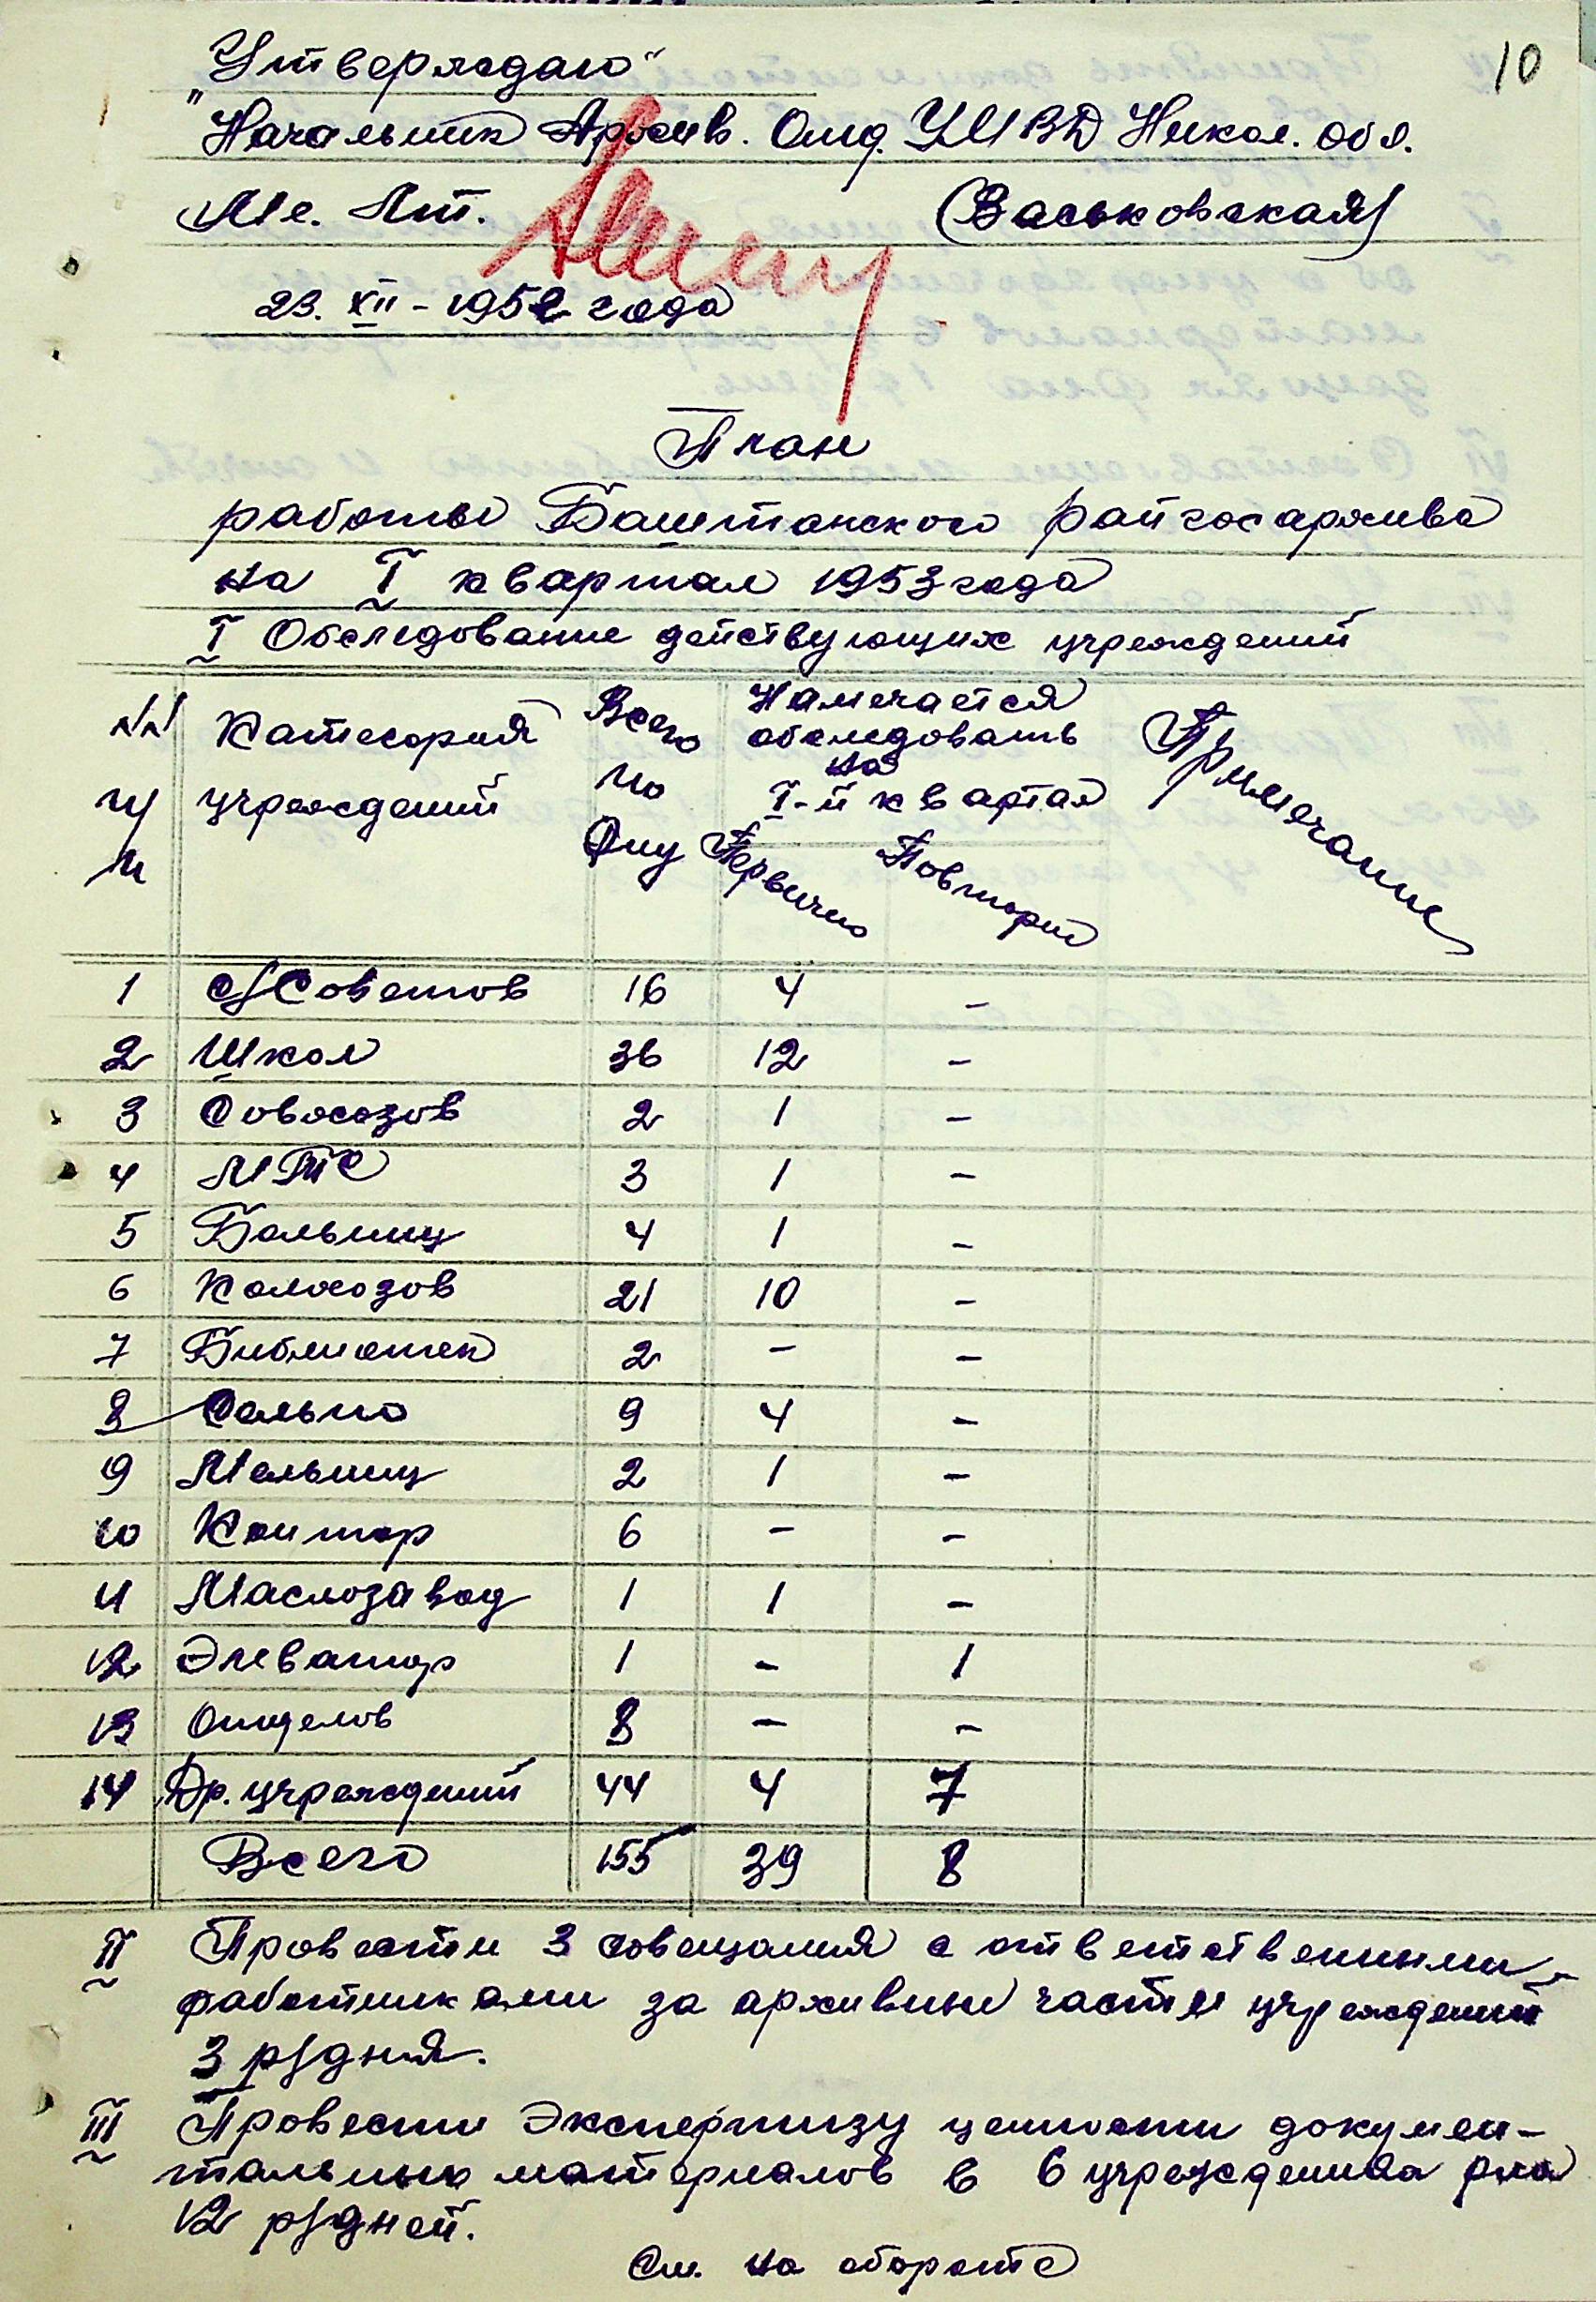 10
„Утверждаю“
"Начальник Архив. Отд. УМВД Никол. обл.
Мл. Лт. (Васьковская)
23. XII – 1952 года
План
работы Баштанского райгосархива
на I квартал 1953 года
I Обследование действующих учреждений
№№ п/п Категория учреждений Всего по Спиу Намечается обследовать на I-й квартал Примечание
Первично Повторно
1 с/Советов 16 4 –
2 Школ 36 12 –
3 Совхозов 2 1 –
4 МТС 3 1 –
5 Больниц 4 1 –
6 Колхозов 21 10 –
7 Библиотек 2 – –
8 Сельпо 9 4 –
9 Мельниц 2 1 –
10 Контор 6 – –
11 Маслозавод 1 1 –
12 Элеватор 1 – 1
13 Отделов 8 – –
14 Др. учреждений 44 4 7
Всего 155 39 8
II Провести 3 совещания с ответственными
работниками за архивные части учреждений
3 р/дня.
III Провести Экспертизу ценности докумен-
тальных материалов в 6 учреждениях р-на
12 р/дней.
См. на обороте